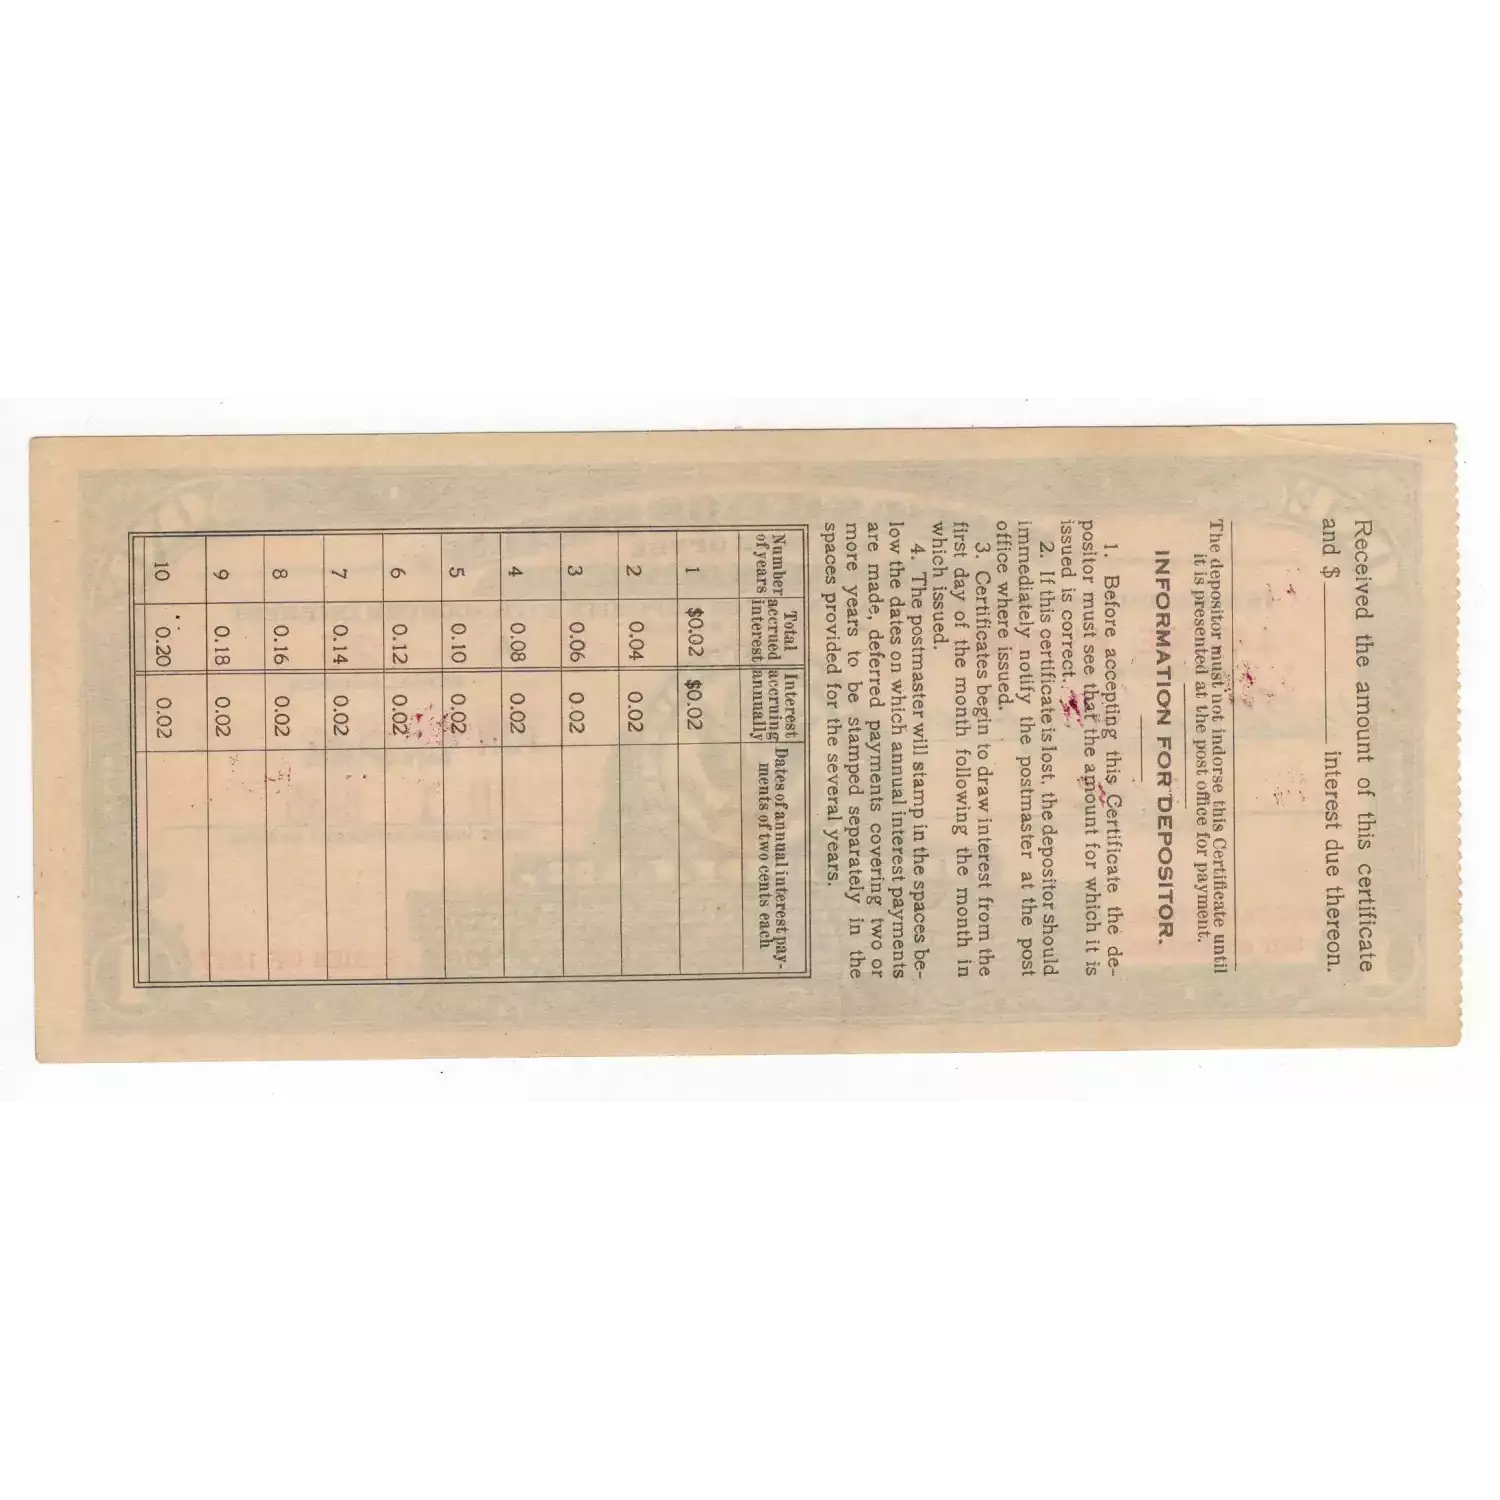 Received the amount of this certificate
and $ interest due thereon.
The depositor must not indorse this Certificate until
it is presented at the post office for payment.
INFORMATION FOR DEPOSITOR.
1. Before accepting this Certificate the de-
positor must see that the amount for which it is
issued is correct.
2. If this certificate is lost, the depositor should
immediately notify the postmaster at the post
office where issued.
3. Certificates begin to draw interest from the
first day of the month following the month in
which issued.
4. The postmaster will stamp in the spaces be-
low the dates on which annual interest payments
are made, deferred payments covering two or
more years to be stamped separately in the
spaces provided for the several years.
Number of years Total accrued interest Interest accruing annually Dates of annual interest pay-
ments of two cents each
1 $0.02 $0.02
2 0.04 0.02
3 0.06 0.02
4 0.08 0.02
5 0.10 0.02
6 0.12 0.02
7 0.14 0.02
8 0.16 0.02
9 0.18 0.02
10 0.20 0.02